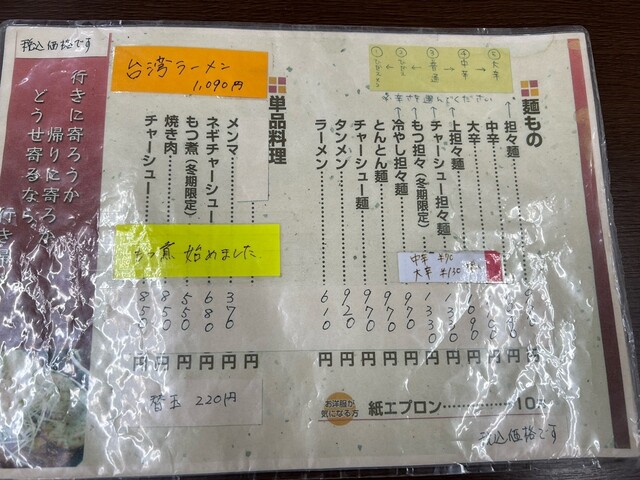 税込価格です
行きに寄ろうか
帰りに寄ろか
どうせ寄るなら
行き
台湾ラーメン
1,090円
① ② ③ ④ ⑤
普通
中辛
大辛
麺もの
担々麺
中辛
大辛
上担々麺
チャーシュー担々麺
もつ担々(冬期限定)
冷やし担々麺 970円
とんとん麺 970円
チャーシュー麺 970円
タンメン 920円
ラーメン 610円
中辛 ¥90
大辛 ¥130
単品料理
メンマ 370円
ネギチャーシュー 680円
もつ煮(冬期限定) 550円
焼き肉 850円
チャーシュー 850円
もつ煮 始めました
替玉 220円
お洋服が
気になる方
紙エプロン 10
税込価格です